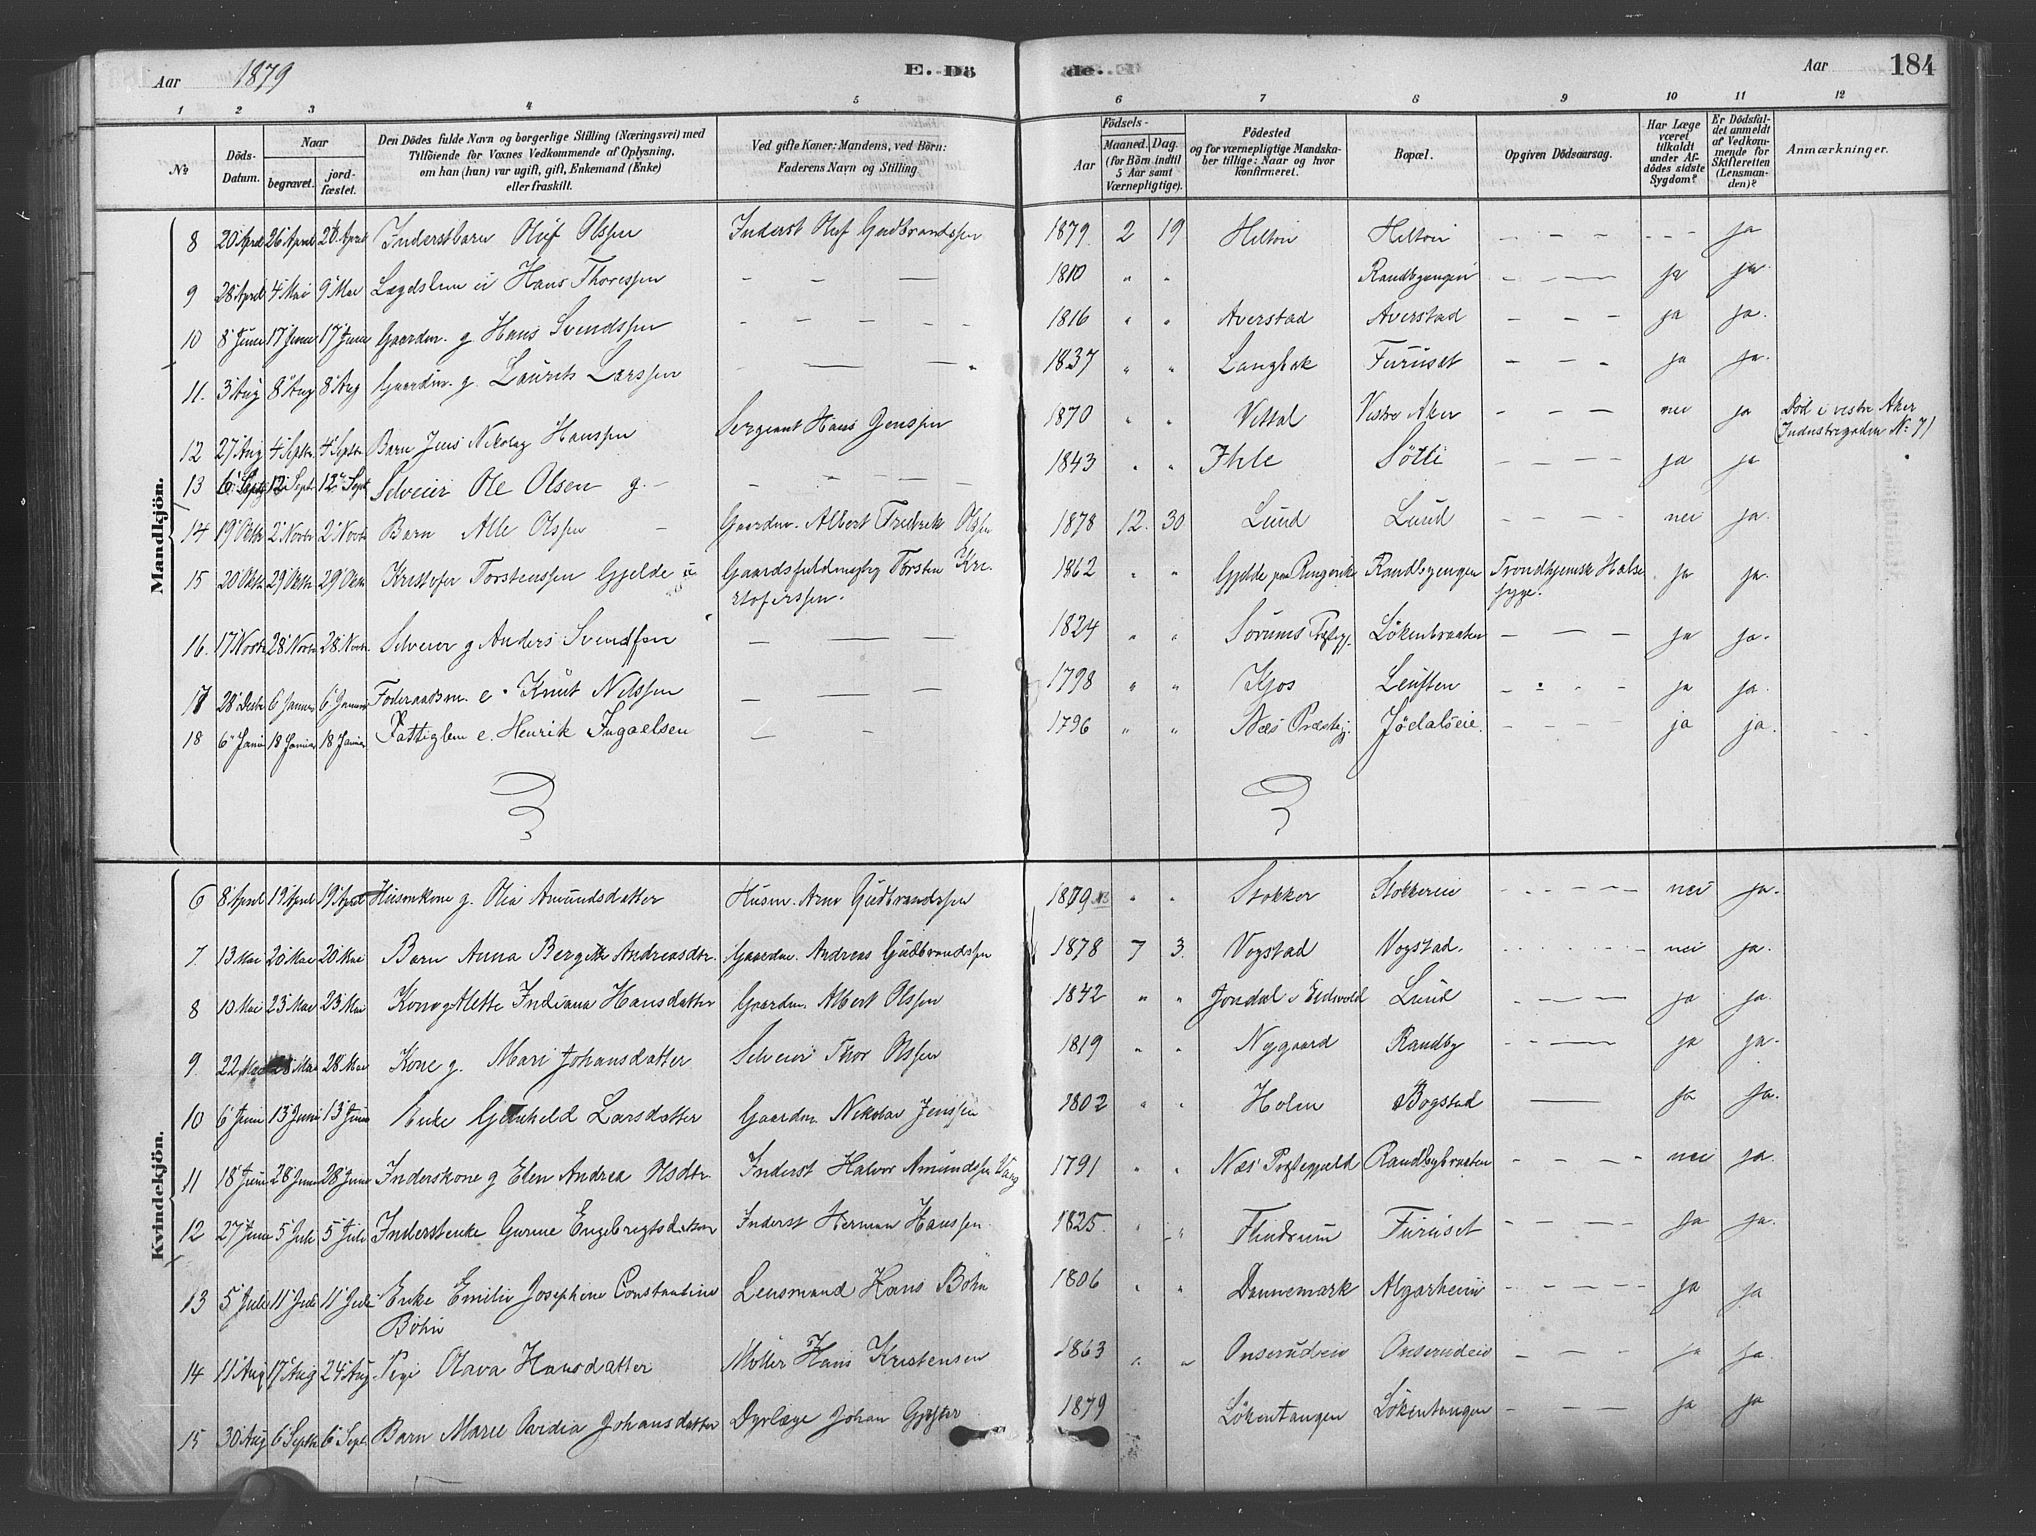 Aar 1879 E. Dö de. Aar 184
1 2 3 4 5 6 7 8 9 10 11 12
No Döds-Datum. Naar begravet. jordfæstet. Den Dödes fulde Navn og borgerlige Stilling (Næringsvei) med Tilföiende for Voxnes Vedkommende af Oplysning, om han (hun) var ugift, gift, Enkemand (Enke) eller fraskilt. Ved gifte Koner: Mandens, ved Börn: Faderens Navn og Stilling Födsels- Aar Maaned. Dag. (for Börn indtil 5 Aar samt Værnepligtige). Födested og for værnepligtige Mandskaber tillige: Naar og hvor konfirmeret. Bopæl. Opgiven Dödsaarsag. Har Læge været tilkaldt under Afdödes sidste Sygdom? Er Dödsfaldet anmeldt af Vedkommende for Skifteretten (Lensmanden)? Anmærkninger.
Mandkjön.
8 20 April 26 April 26 April Inderstbarn Oluf Olssen Inderst Oluf Gudbrandssen 1879 2 19 Helton Helton — — — — - - - ja
9 28 April 4 Mai 9 Mai Lægdslem Hans Thoressen — — — 1810 " " Randbyengen — — — — ja ja
10 8 Juni 17 Juni 17 Juni Gaardm. g Hans Svendssen — — — — 1816 " " Averstad Averstad — — — ja ja.
11. 3 Aug 8 Aug 8 Aug Gaardm. g. Laurits Larssen — — 1837 " " Langbak Furuset — — — ja ja.
12 27 Aug 4 Septbr. 4 Septbr. Barn Jens Nikolay Hanssen Sergeant Hans Jenssen 1870 " " Vittal Vestre Aker — — — — nei ja Död i vestre Aker
Industrigaden No 71
13 6 Septbr 12 Sept 12 Sept Selveier Ole Olsen g. — — — — — 1843 " " Ihle Sötli — — — — ja ja
14 19 Oktbr 2 Novbr 2 Novbr Barn Alle Olssen — Gaardm. Albert Fredrik Olssen 1878 12. 30 Lund Lund — — — — nei ja.
15 20 Oktbr 29 Oktbr 29 Oktbr Kristofer Torstenssen Gjelde u Gaardsfuldmægtig Torsten Kri-
stoferssen. 1862 " " Gjelde paa Ringerike Randbyengen Trondhjemsk Halssyge. ja ja.
16. 17 Novbr 28 Novbr 28 Novbr. Selveier g Anders Svendsen — — — 1824 " " Sörums Præstegj. Lökenbraaten — — — — ja ja.
17 28 Decbr 6 Januar 6 Januar Föderaadsm. e. Knut Nilssen — — — 1798 " " Kjos — — — — ja ja.
18 6 Janua 18 Januar 18 Januar Fattiglem e. Henrik Ingaelsen — — — 1796 " " Næs Præstegj. Jödalseie. — — — — ja ja.
Kvindekjön.
6 8 April 19 April 19 April Husmkone g. Olia Amundsdatter Husm. Arne Gudbrandssen " " Stokker Stokkereie — — — — nei ja.
7. 13 Mai 20 Mai 20 Mai Barn Anna Bergitte Andreasdtr. Gaardm. Andreas Gudbrandssen 1878 7 3. Vogstad Vogstad. nei ja.
8 10 Mai 23 Mai 23 Mai Kone g Alette Indiana Hansdatter Gaardm. Albert Olssen 1842 " " Jondal i Eidsvold Lund — — — — ja ja.
9. 22 Mai 28 Mai 28 Mai Kone g. Mari Johansdatter Selveier Thor Olssen 1819 " " Nygaard Randby — — — ja ja.
10 6 Juni 13 Juni 13 Juni Enke Gunhild Larsdatter Gaardm. Nikolai Jenssen 1802 " " Holm Bogstad — ja ja.
11 18 Juni 28 Juni 28 Juni Inderskone g Elen Andrea Olsdtr. Inderst Halvor Amundsen Vaag 1791 " " Næs Præstegjeld Randbybraaten — — — — nei ja.
12 27 Juni 5 Juli 5 Juli Inderstenke Gurine Engebregtsdatter Inderst Herman Hanssen 1825 " " Furuset — — — — ja ja.
13 5 Juli 11 Juli 11 Juli Enke Emilie Josephine Constantine
Böhn Lensmand Hans Böhn 1806 " " Dannemark Algarheim — — — — ja ja
14 11 Aug 17 Aug 24 Aug Pige Olava Hansdatter Möller Hans Kristensen 1863 " " Onsrudeie Onsrudeie — — — ja ja.
15 30 Aug 6 Septbr 6 Sept. Barn Marie Johansdatter Dyrlæge Johan Gjester 1879 Lökentangen Lökentangen — — — ja ja